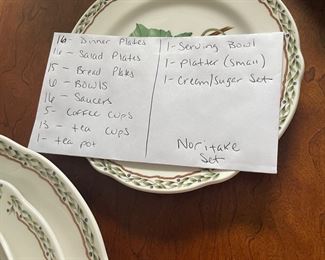 16 - Dinner Plates
16 - Salad Plates
15 - Bread Plates
6 - BOWLS
16 - Saucers
5 - coffee cups
13 - tea cups
1 - tea pot
1 - Serving Bowl
1 - Platter (Small)
1 - Cream/Sugar Set
Noritake
Set